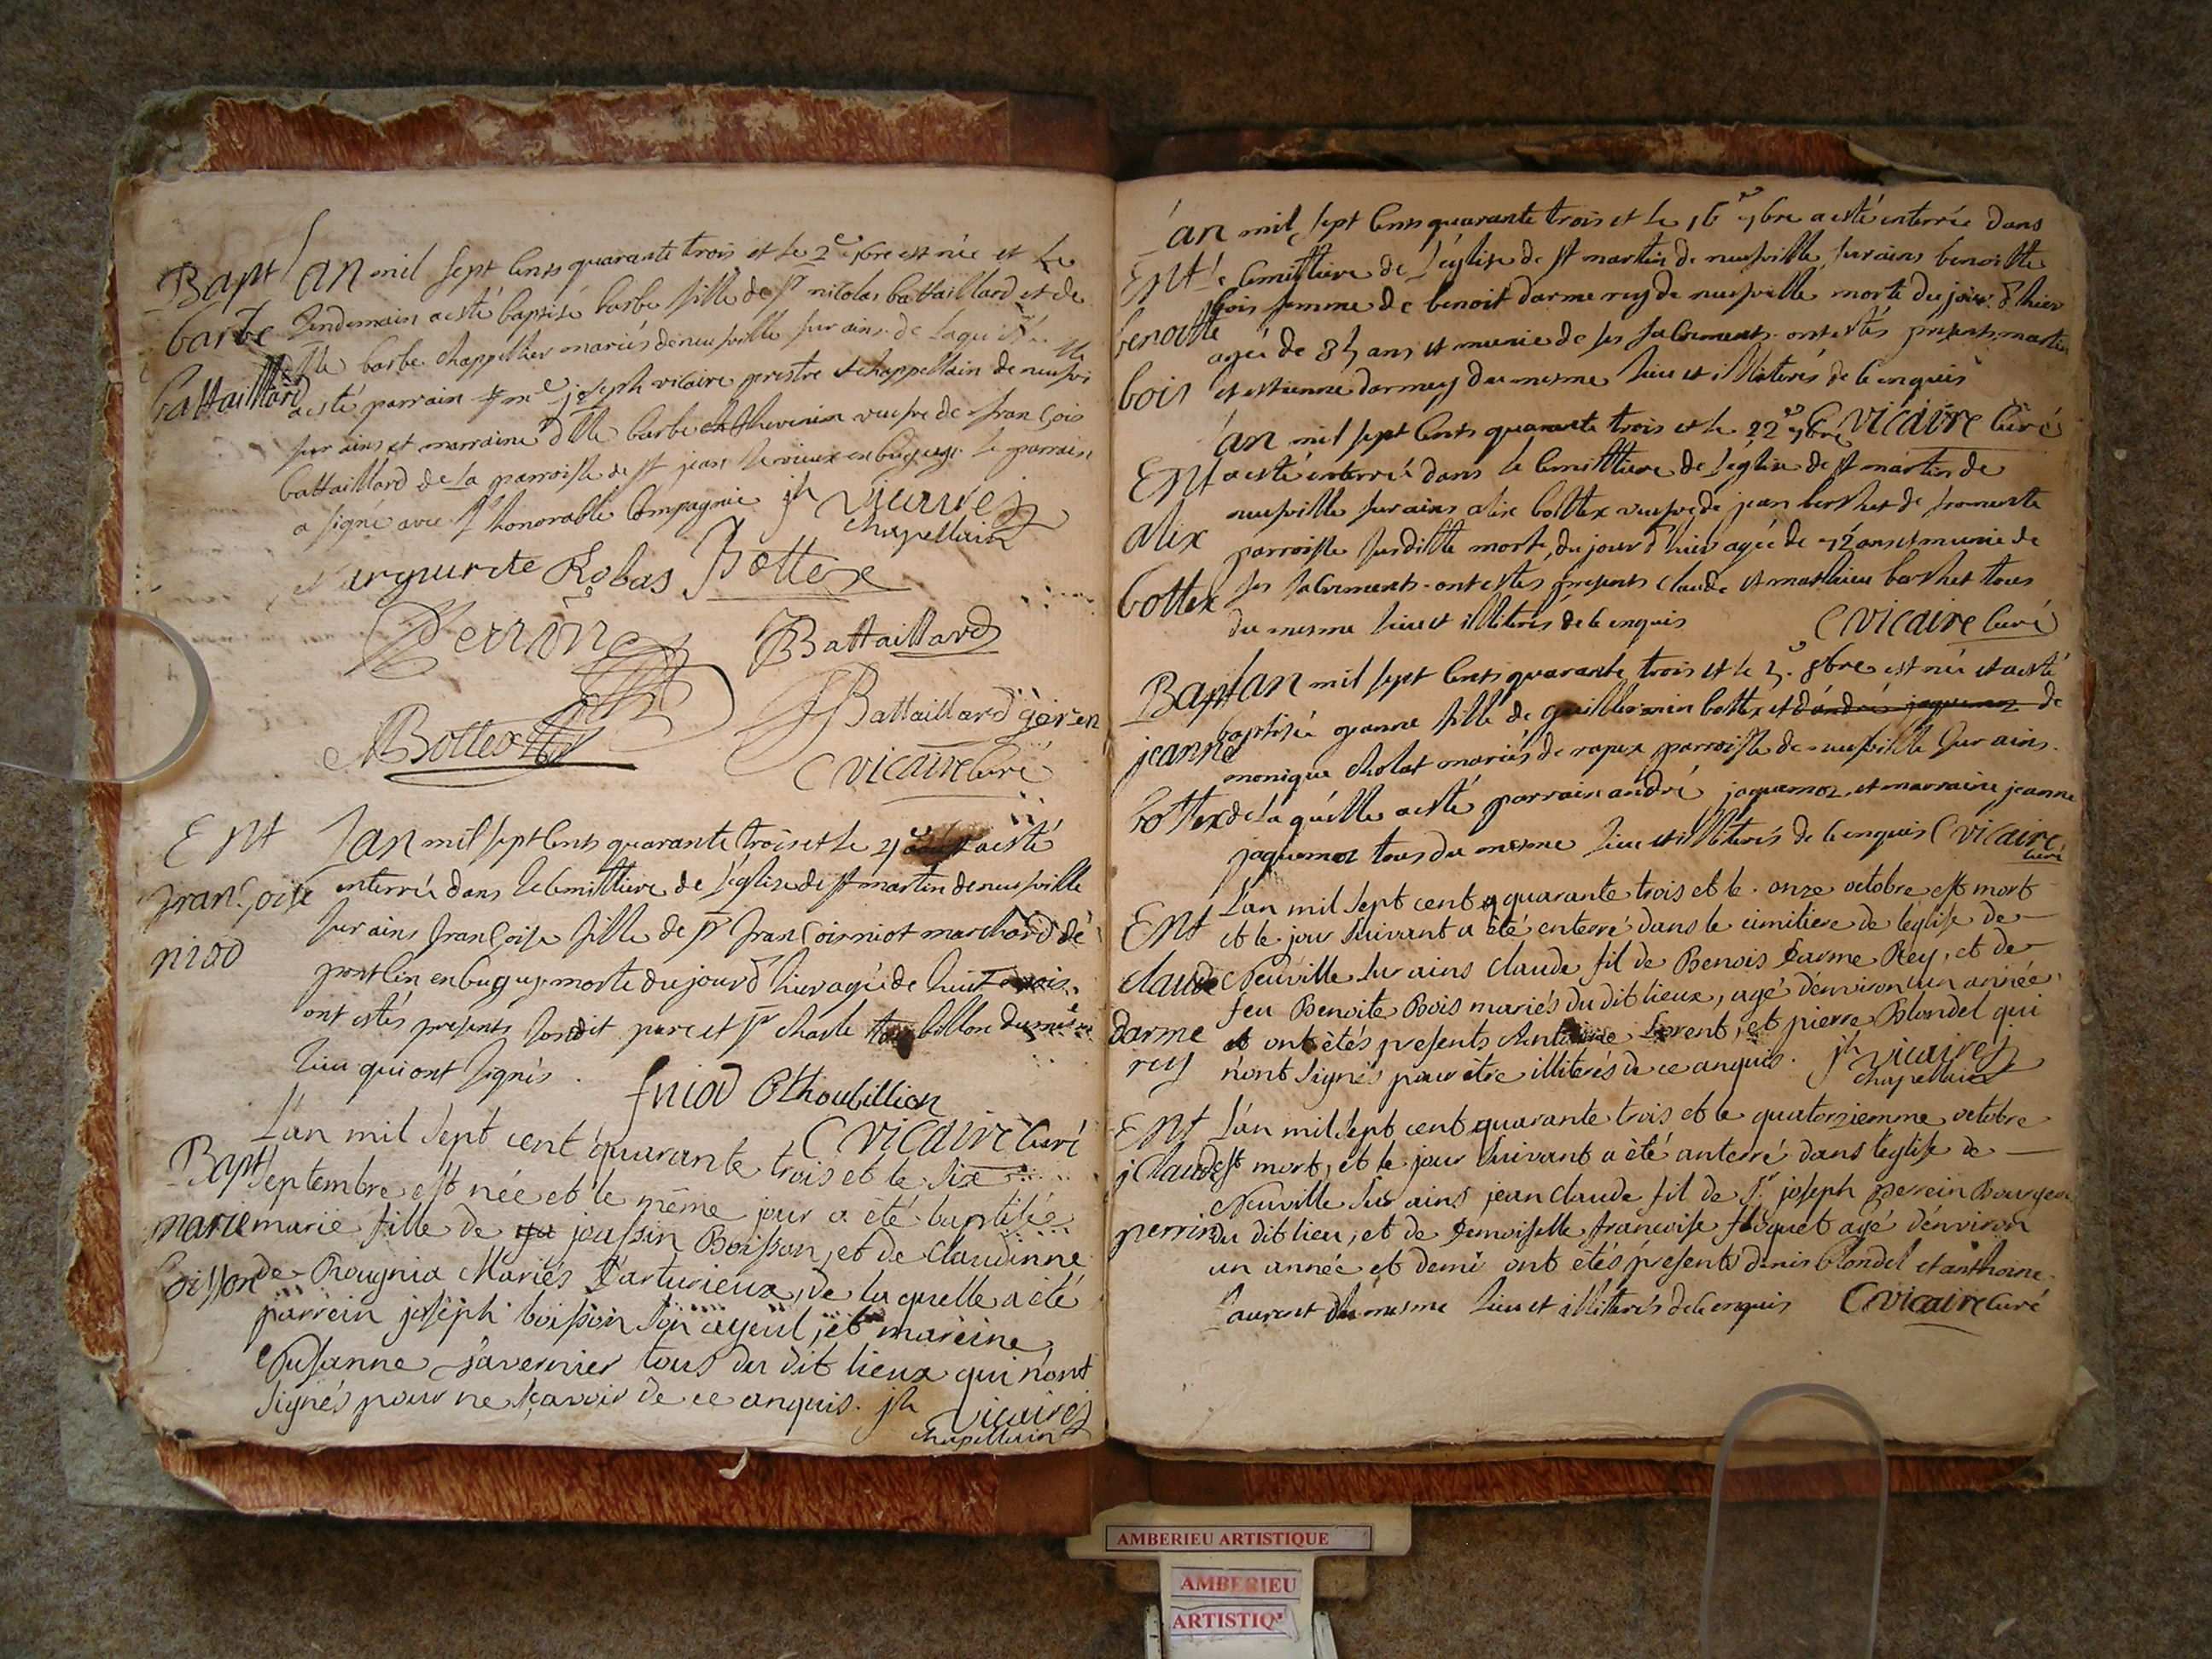 Bapt
barbe
battaillard
Lan mil sept cents quarante trois et le 2e 7bre est née et le
lendemain a esté baptisé barbe fille de sr nicolas battaillard et de
dlle barbe chappellier mariés de neufville sur ains de laquelle
a esté parrain me joseph vicaire prestre et chappellain de neufville
sur ains et marraine dlle barbe thevenin veufve de françois
battaillard de la parroisse de st jean le vieux en bugey le parrain
a signé avec l'honorable compagnie jh vicaire
chapellain
marguerite Robas Bottex
Perrin Battaillard
Bottex Battaillard
C vicaire curé
Ent
françoise
niod
Lan mil sept cents quarante trois et le a esté
enterrée dans le cemittiere de l'église de st martin de neufville
sur ains françoise fille de sr françois niot marchand de
pontlin en bugey morte du jour d'hier agée de huit mois
ont estés presents sondit pere et sr charle toubillon du mesme
lieu qui ont signés
f niod C thoubillion
C vicaire curé
Bapt
marie
boisson
L'an mil sept cent quarante trois et le six
septembre est née et le même jour a été baptisée
marie fille de joussin Boisson, et de claudinne
de Rougnia Mariés d'arturieux, de la quelle a été
parrein joseph boisson son ayeul, et mareine
Susanne javernier tous du dit lieux qui n'ont
signés pour ne sçavoir de ce anquis. jh vicaire
chapellain
Ent
benoitte
bois
Lan mil sept cents quarante trois et le 16e 7bre a esté enterrée dans
le cemittiere de l'église de st martin de neufville sur ains benoitte
bois femme de benoit darme rey de neufville morte du jour d'hier
agée de 35 ans et munie de ses sacrements ont estés presents martin
et estienne darmey du mesme lieu et illiterés de ce enquis
C vicaire curé
Ent
alix
bottex
Lan mil sept cents quarante trois et le 22e 7bre
a esté enterrée dans le cemittiere de l'église de st martin de
neufville sur ains alix bottex veufve de jean berthet de fromente
parroisse susditte morte du jour d'hier agée de 72 ans et munie de
ses sacrements ont estés presents claude et mathieu berthet tous
du mesme lieu et illiterés de ce enquis C vicaire curé
Bapt
jeanne
bottex
Lan mil sept cents quarante trois et le 8bre est née et a esté
baptisée jeanne fille de guillermin bottex et d'andré jaquemoz de
monique cholat mariés de rapex parroisse de neufville sur ains
de laquelle a esté parrain andré jaquemoz et marraine jeanne
jaquemoz tous du mesme lieu et illiterés de ce enquis C vicaire
curé
Ent
claude
darme
rey
L'an mil sept cent quarante trois et le onze octobre est mort
et le jour suivant a été enterré dans le cimitiere de l'église de
Neuville sur ains claude fil de Benois Darme Rey, et de
feu Benoite Bois mariés du dit lieux, agé d'environ un année
et ont étés presents Antoine Lorent, et pierre Blondel qui
n'ont signés pour être illiterés de ce anquis. jh vicaire
chapellain
Ent
j Claude
perrin
L'an mil sept cent quarante trois et le quatorziemme octobre
est mort, et le jour suivant a été anterré dans l'église de
Neuville sur ains jean claude fil de Sr joseph perrein Bourgeois
du dit lieu, et de Demoiselle francoise floquet agé d'environ
un année et demi ont étés présents denis blondel et anthoine
laurent du mesme lieu et illiterés de ce enquis C vicaire curé
AMBERIEU ARTISTIQUE
AMBERIEU
ARTISTIQ'